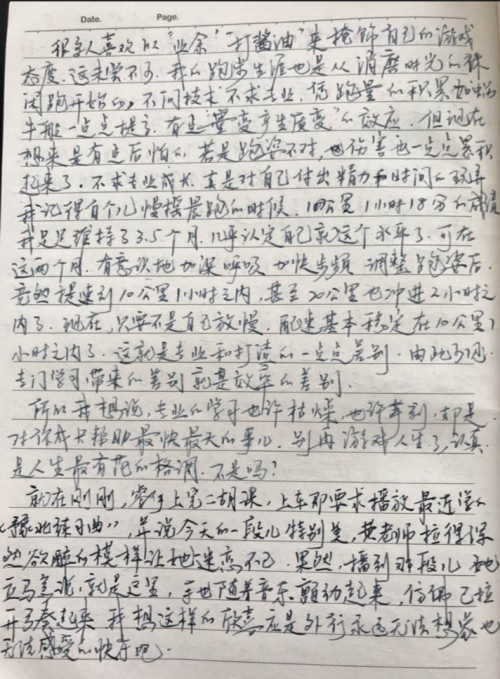 Date. Page.
很多人喜欢以"业余""打酱油"来掩饰自己的游戏
态度,这未尝不可.我的跑步生涯也是从消磨时光的休
闲跑开始的,不问技术不求专业,凭跑量的积累如蜗
牛般一点点提高.有点"量变产生质变"的效应.但现在
想来是有点后怕的,若是跑姿不对,伤害也一点点累积
起来了.不求专业成长,真是对自己付出精力和时间的
我记得有个儿慢摆晨跑的时候,10公里1小时18分的成绩
我足足维持了3.5个月,几乎认定自己就这个水平了.可在
这两个月,有意识地加深呼吸 加快步频 调整跑姿后,
竟然提速到10公里1小时之内,甚至20公里也冲进2小时之
内了.现在,只要不是自己放慢,配速基本稳定在10公里1
小时之内了.这就是专业和打渣的一点点差别.由此可见
专门学习带来的差别就是效率的差别.
所以我想说,专业的学习也许枯燥,也许苛刻,却是
对你成长帮助最快最大的事儿.别再游戏人生了,认真
是人生最有范的格调.不是吗?
就在刚刚,上完二胡课,上车即要求播放最近学的
练习曲》,并说今天的一段儿特别美,黄老师拉得
欲醉的模样让她迷高不已.果然,播到那段儿 她
立马差说,就是这里,手也随着音乐 颤动起来,仿佛已拉
弓奏起来.我想这样的欣喜应是外行永远无法想象也
无法感受的快乐吧.